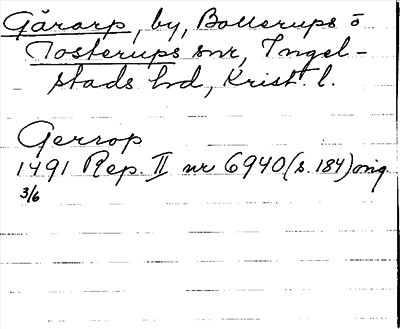 Gärarp, by, Bollerups o
Tosterups snr, Ingel-
stads hd, Krist. l.
Gerrop
1491 Rep. II nr 6940 (s. 184) orig.
3/6